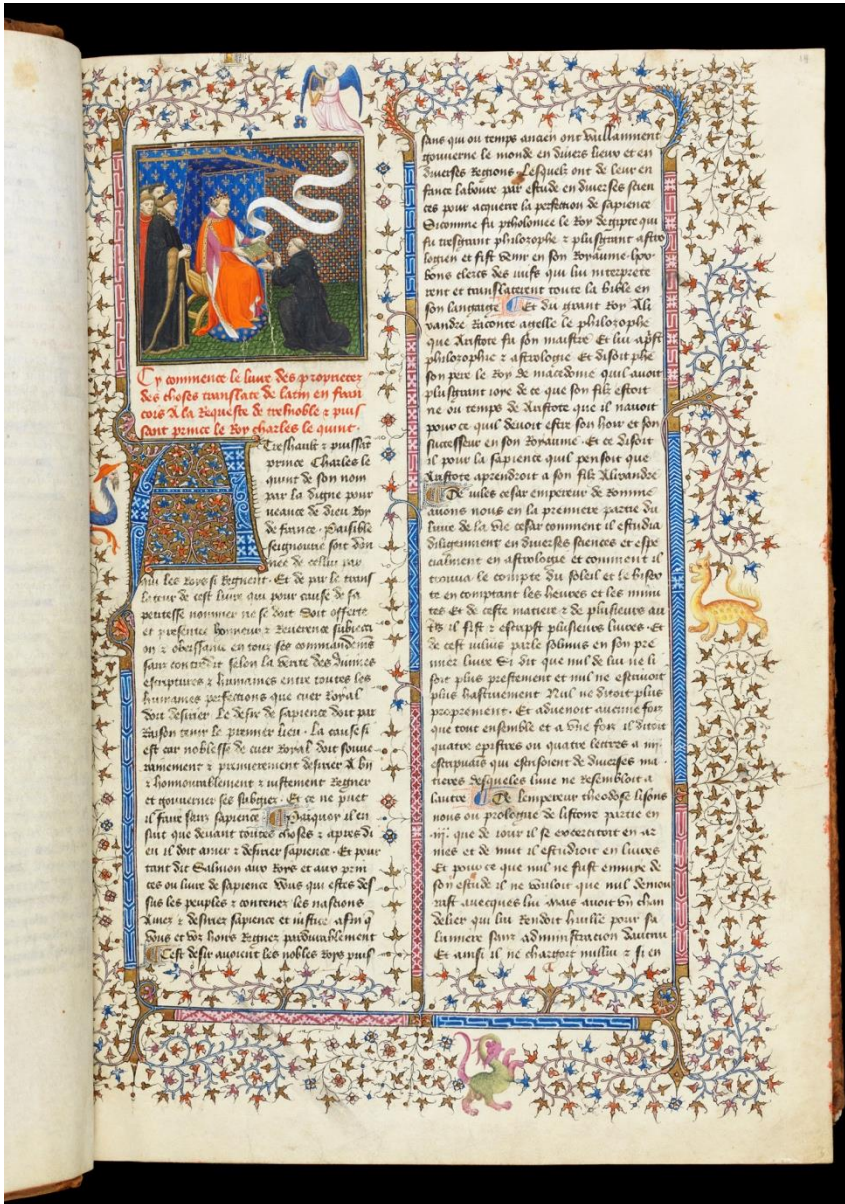 Cy commence le livre des proprietez
des choses translate de latin en fran
cois A la Requeste de tresnoble ⁊ puis
sant prince le Roy charles le quint.
A Treshault ⁊ puissāt
prince Charles le
quint de son nom
par la digne pour
veance de dieu Roy
de france. paisible
seignourie soit don
nee de cellui par
qui les Roys si Regnent. Et de par le trans
lateur de cest livre qui pour cause de sa
petitesse nommer ne se doit Soit offerte
et presentee honneur ⁊ Reverence subiecti
on ⁊ obeissance en tous ses commandemēs
sans contredit selon la verite des divines
escriptures ⁊ humaines entre toutes les
humaines perfections que cuer Royal
doit desirer. Le desir de sapience doit par
Raison tenir le premier lieu. La cause si
est car noblesse de cuer Royal doit souve
rainement ⁊ premierement desirer A biē
⁊ honnourablement ⁊ iustement Regner
et gouverner ses subgiez. Et ce ne puet
il faire sans sapience Parquoy il en
suit que devant toutes choses ⁊ apres di
eu il doit amer ⁊ desirer sapience. Et pour
tant dit Salmon aux Roys et aux prin
ces ou livre de sapience Vous qui estes des
sus les peuples ⁊ contenez les nascions
Amez ⁊ desirez sapience et iustice afin q̄
vous et voz hoirs Regnez pardurablement
Cest desir avoient les nobles Roys puis
sans qui ou temps ancien ont vaillamment
gouverne le monde en divers lieux et en
diverses Regions Lesquelz ont de leur en
fance laboure par estude en diverses scien
ces pour acquerir la perfection de sapience
Sicomme fu ptholomee le Roy degipte qui
fu tresgrant philozophe ⁊ plusgrant astro
logien et fist venir en son Royaume
bons clercs des iuifs qui lui interprete
rent et translaterent toute la bible en
son langaige Et du grant Roy Ali
xandre Raconte agelle le philozophe
que Aristote fu son maistre Et lui aprist
philozophie ⁊ astrologie Et disoit phē
son pere le Roy de macedoine quil avoit
plusgrant ioye de ce que son filz estoit
ne ou temps de Aristote que il navoit
pour ce quil devoit estre son hoir et son
successeur en son Royaume. Et ce disoit
il pour la sapience quil pensoit que
Aristote aprendroit a son filz Alixandre
De iules cesar empereur de Romme
avons nous en la premiere partie du
livre de la vie cesar comment il estudia
diligemment en diverses sciences et espe
cialment en astrologie et comment il
trouva le compte du soleil et le bisex
te en comptant les heures et les minu
tes Et de ceste matiere ⁊ de plusieurs au
tres il fist ⁊ escripst plusieurs livres. Et
de cest iulius parle solinus en son pre
mier livre Si dit que nul de lui ne li
soit plus prestement et nul ne escrivoit
plus hastivement Nul ne ditoit plus
proprement. Et advenoit aucune fois
que tout ensemble et a une fois il ditoit
quatre epistres ou quatre lettres a iiij
escripvains qui escrisoient de diverses ma
tieres desqueles lune ne Resembloit a
lautre De lempereur theodose lisons
nous ou prologue de listoire partie en
iij. que de iour il se exercitoit en ar
mes et de nuit il estudioit en livres
Et pour ce que nul ne fust ennuye de
son estude il ne vouloit que nul demou
rast avecques lui mais avoit un chan
delier qui lui Rendoit huille pour sa
lumiere sans administracion dautrui
Et ainsi il ne chargoit nullui ⁊ si en